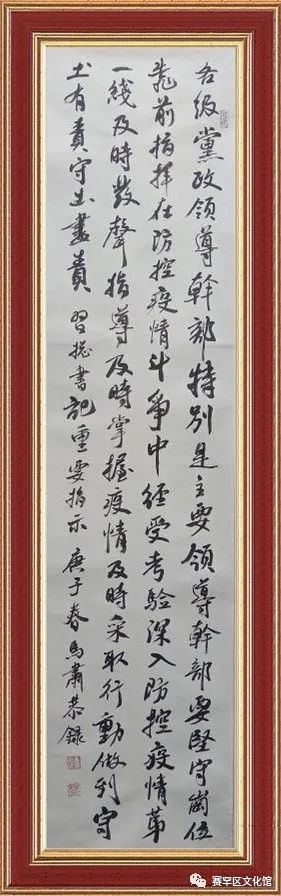 各級黨政領導幹部特別是主要領導幹部要堅守崗位
靠前指揮在防控疫情斗爭中經受考驗深入防控疫情第
一綫及時發聲指導及時掌握疫情及時采取行動做到守
土有責守土盡責 習總書記重要指示 庚子春馬蕭恭錄
赛罕区文化馆